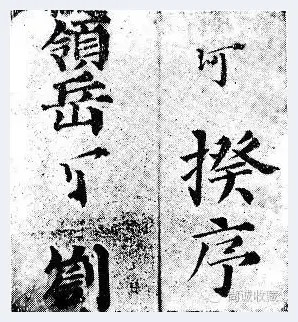 可 揆序
領岳 可 劉
同城收藏